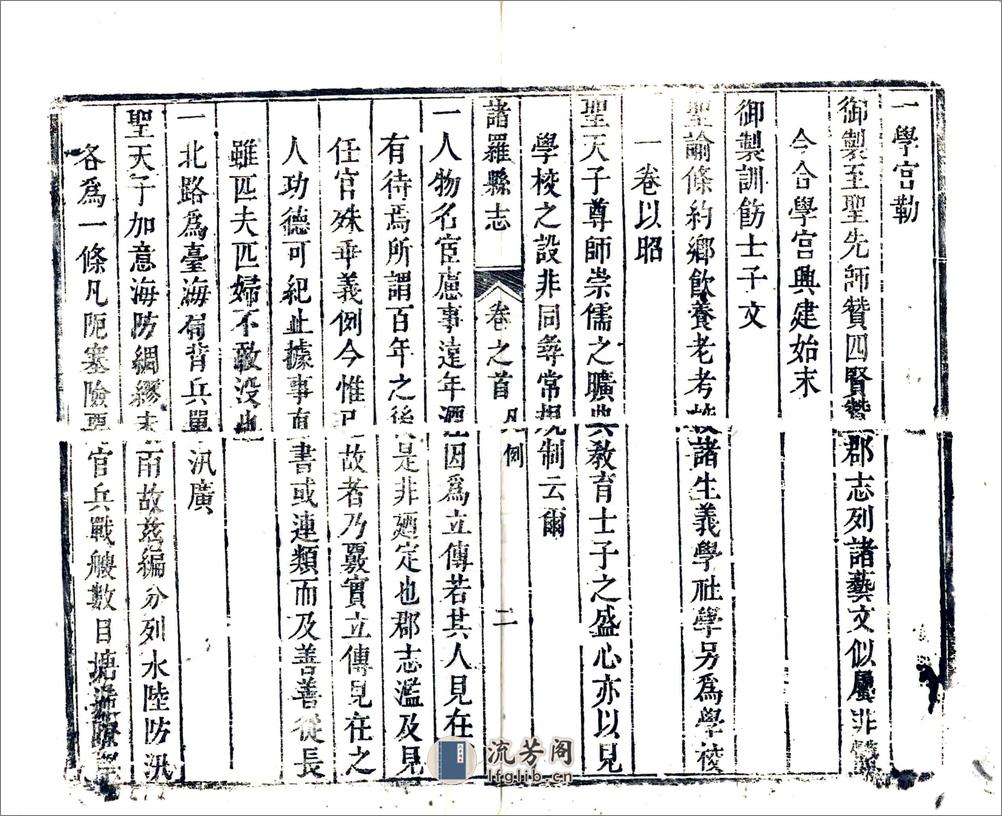 一學宮勒
御製至聖先師贊四賢贊郡志列諸藝文似屬非
今合學宮興建始末
御製訓飭士子文
聖諭條約鄉飲養老考校諸生義學社學另為學校
一卷以昭
聖天子尊師崇儒之曠典教育士子之盛心亦以見
學校之設非同彝常規制云爾
諸羅縣志 卷之首 凡例 二
一人物名宦慮事遠年湮因為立傳若其人見在
有待焉所謂百年之後是非廼定也郡志濫及見
任官殊乖義例今惟已故者乃覈實立傳見在之
人功德可紀止據事直書或連類而及善善從長
雖匹夫匹婦不敢没也
一北路為臺海肩背兵單汛廣
聖天子加意海防綢繆未雨故茲編分列水陸防汛
各為一條凡阨塞險要官兵戰艘數目塘
流芳阁
lfglib.cn